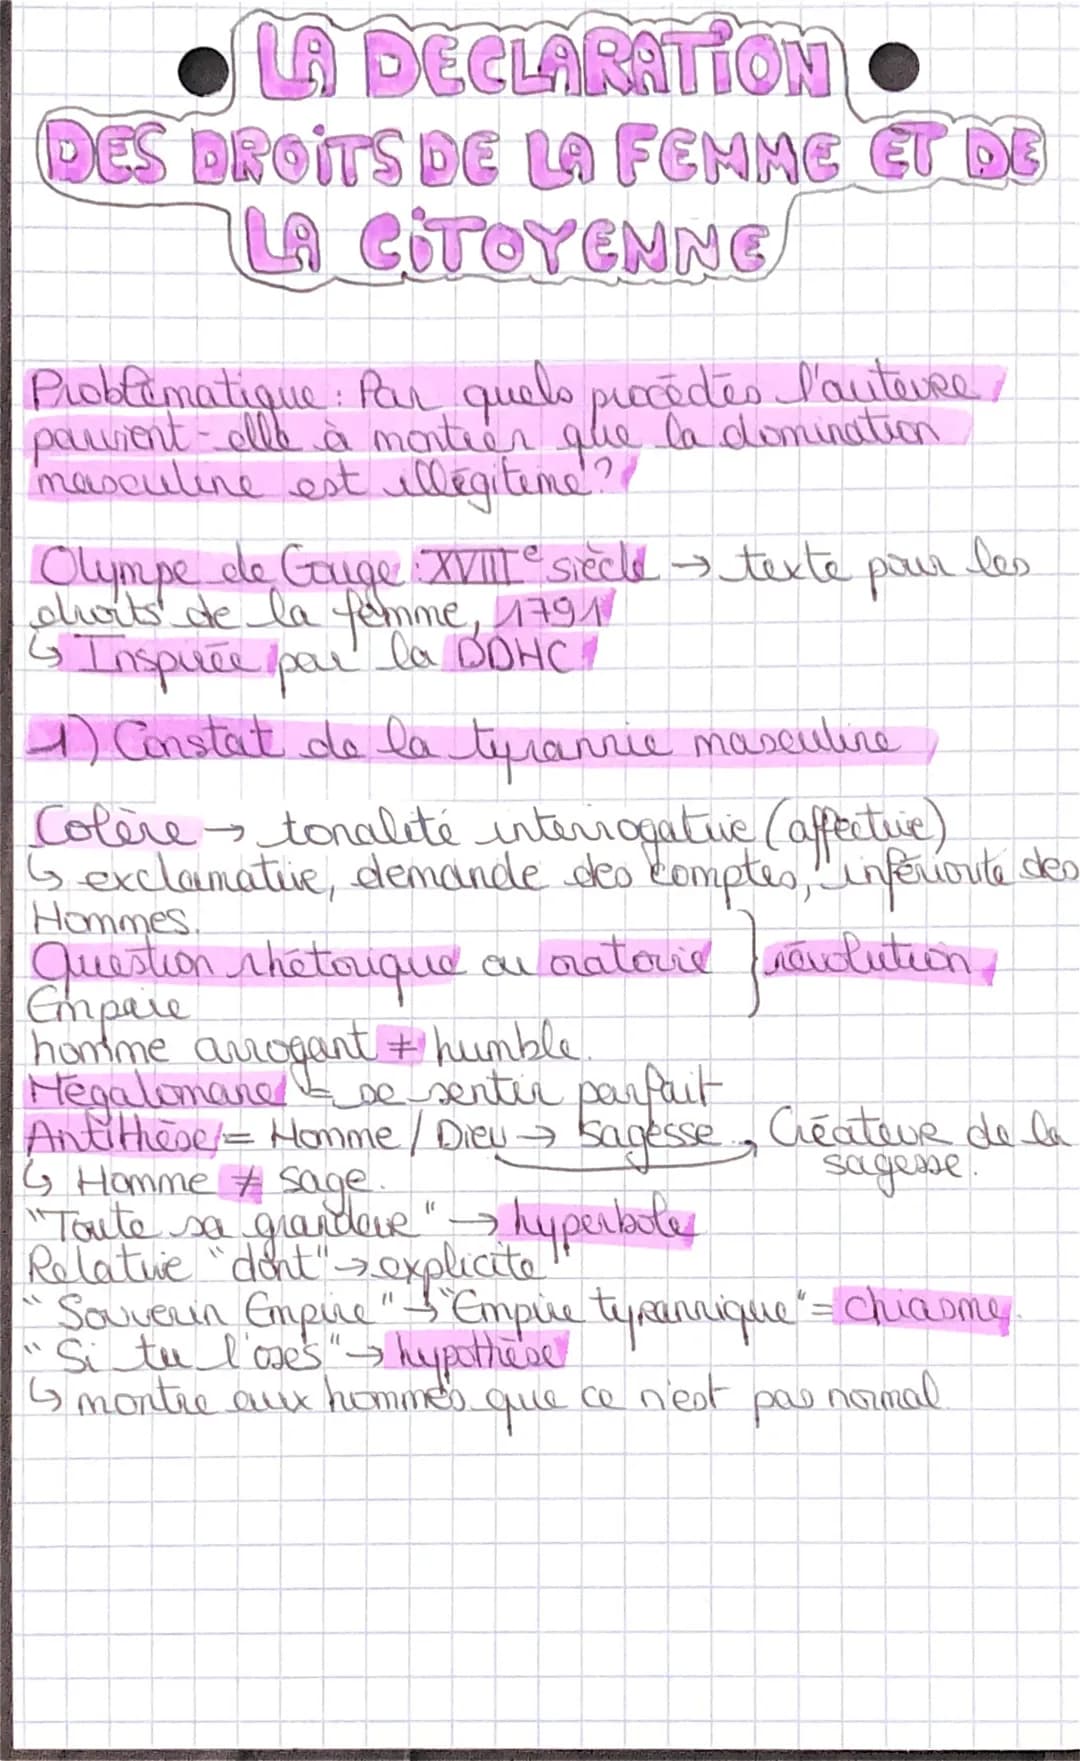 LA DECLARATION
DES DROITS DE LA FEMME ET DE
LA CITOYENNE
Problématique : Par quels procédés l'auteure
parvient-elle à montrer que la domination
masculine est illégitime ?
Olympe de Gouge : XVIIIe siècle → texte pour les
droits de la femme, 1791
↳ Inspirée par la DDHC
1) Constat de la tyrannie masculine
Colère → tonalité interrogative (affective)
↳ exclamative, demande des comptes, infériorité des
Hommes.
Question rhétorique ou oratoire } révolution
Empire
homme arrogant ≠ humble.
Mégalomane = se sentir parfait
Antithèse = Homme / Dieu → sagesse → Créateur de la
sagesse.
↳ Homme ≠ sage.
"Toute sa grandeur" → hyperbole
Relative "dont" → explicite
"Souverin Empire" → "Empire tyrannique" = chiasme
"Si tu l'oses" → hypothèse
↳ montre aux hommes que ce n'est pas normal.